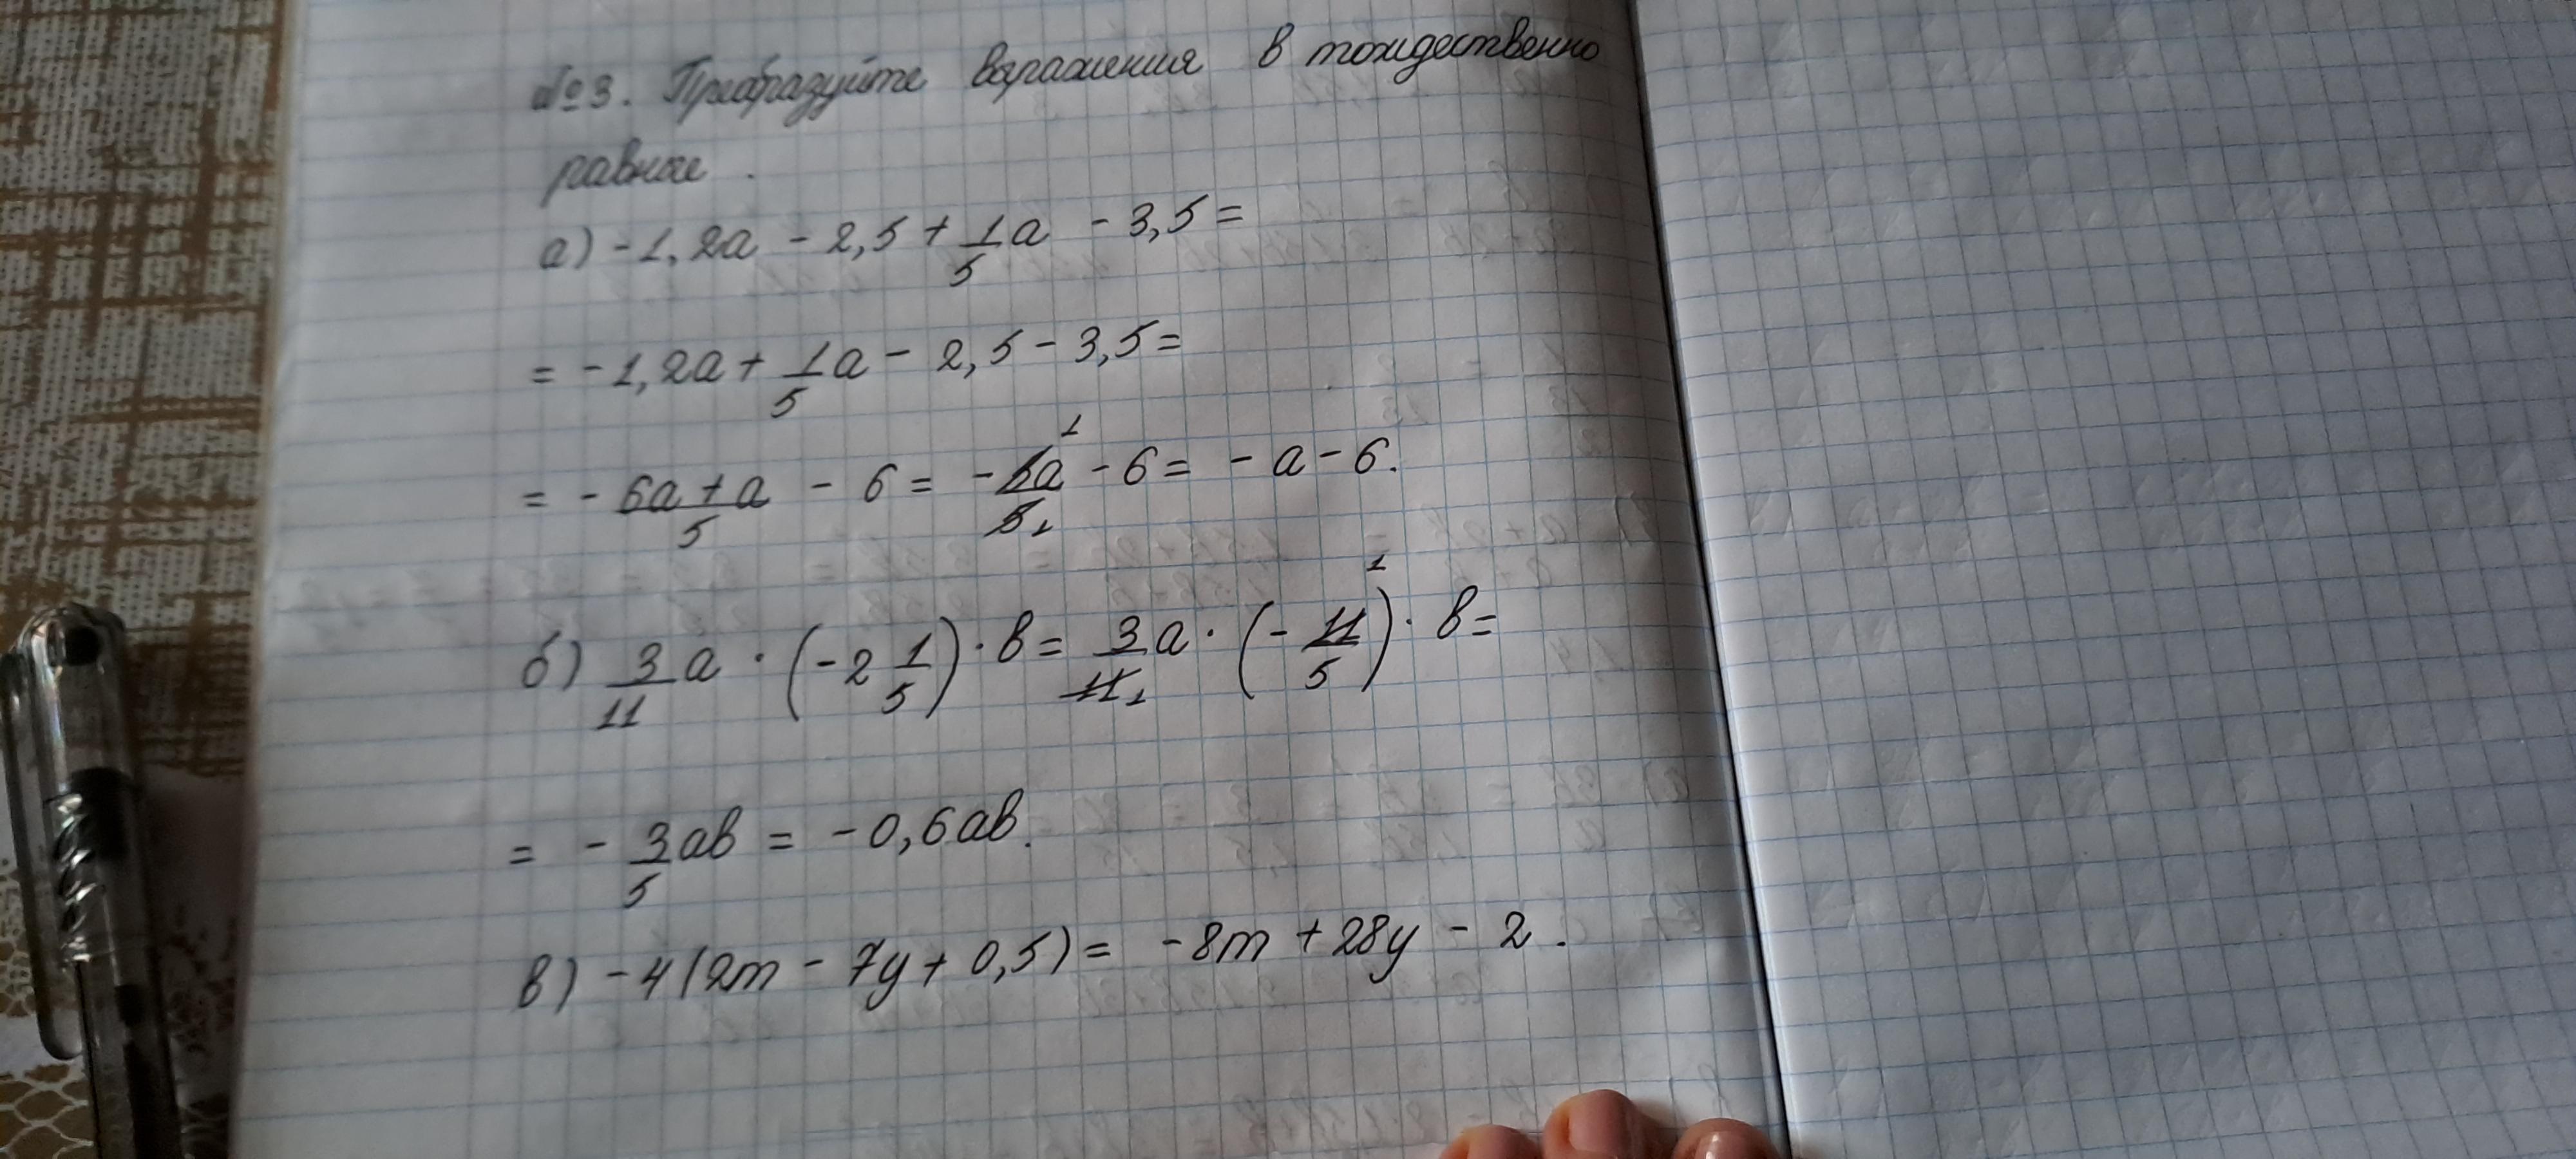 №3. Преобразуйте выражения в тождественно
равные.
а) -1,2a - 2,5 + 1/5 a - 3,5 =
= -1,2a + 1/5 a - 2,5 - 3,5 =
= - 6a + a / 5 - 6 = - 5a / 5 1 1 - 6 = - a - 6.
б) 3/11 a · (-2 1/5) · b = 3/11 1 a · (- 11/5 1) · b =
= - 3/5 ab = -0,6ab.
в) -4(2m - 7y + 0,5) = -8m + 28y - 2.